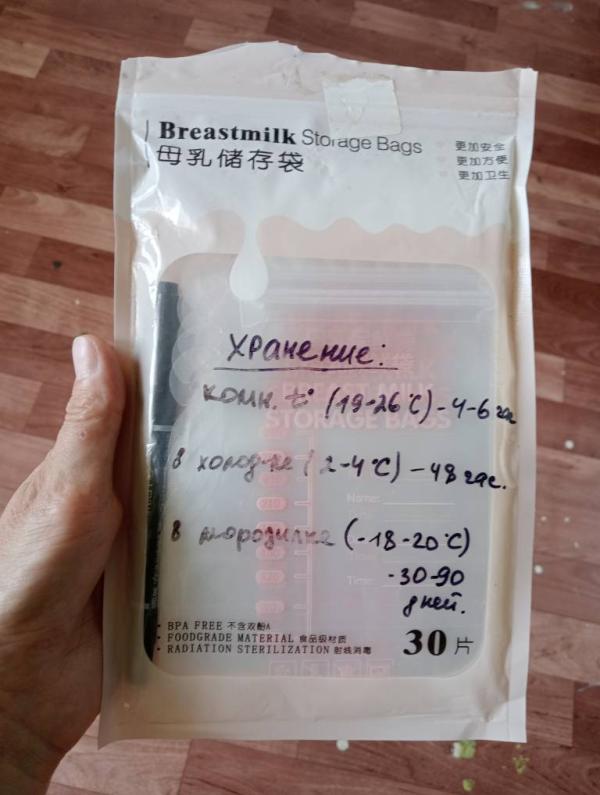 Breastmilk Storage Bags
母乳储存袋
更加安全
更加方便
更加卫生
хранение:
комн. t° (19-26°C) - 4-6 час
в холод-ке (2-4°C) - 48 час.
в морозилке (-18-20°C)
-30-90
дней.
BREAST MILK
STORAGE BAGS
Name:
Time:
· BPA FREE 不含双酚A
· FOODGRADE MATERIAL 食品级材质
· RADIATION STERILIZATION 射线消毒
30片